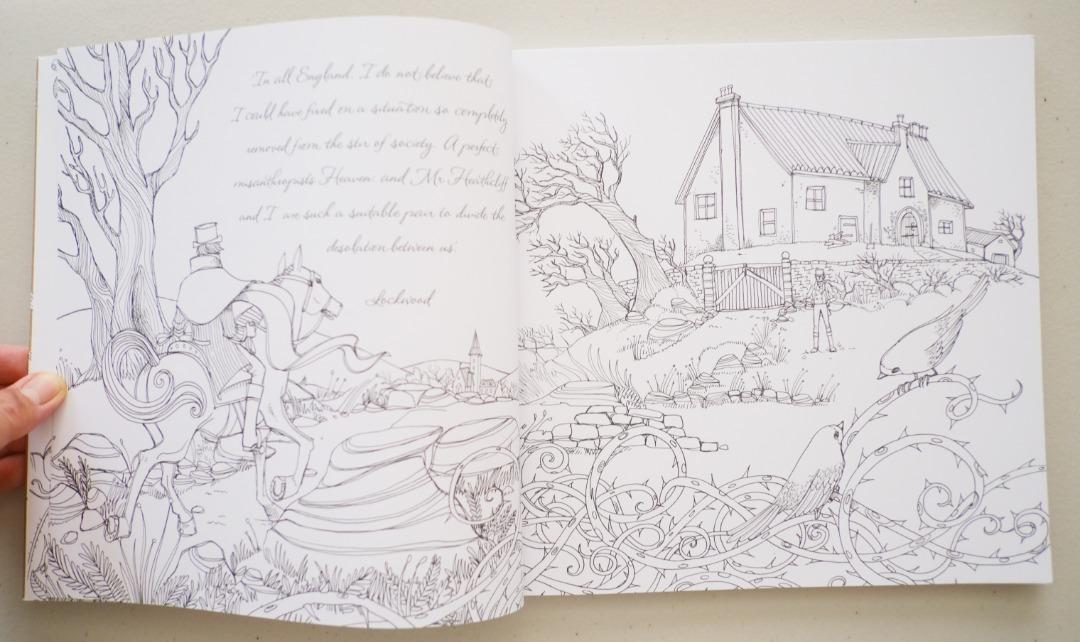 'In all England, I do not believe that
I could have fixed on a situation so completely
removed from the stir of society. A perfect
misanthropist's Heaven: and Mr. Heathcliff
and I are such a suitable pair to divide the
desolation between us'.
Lockwood